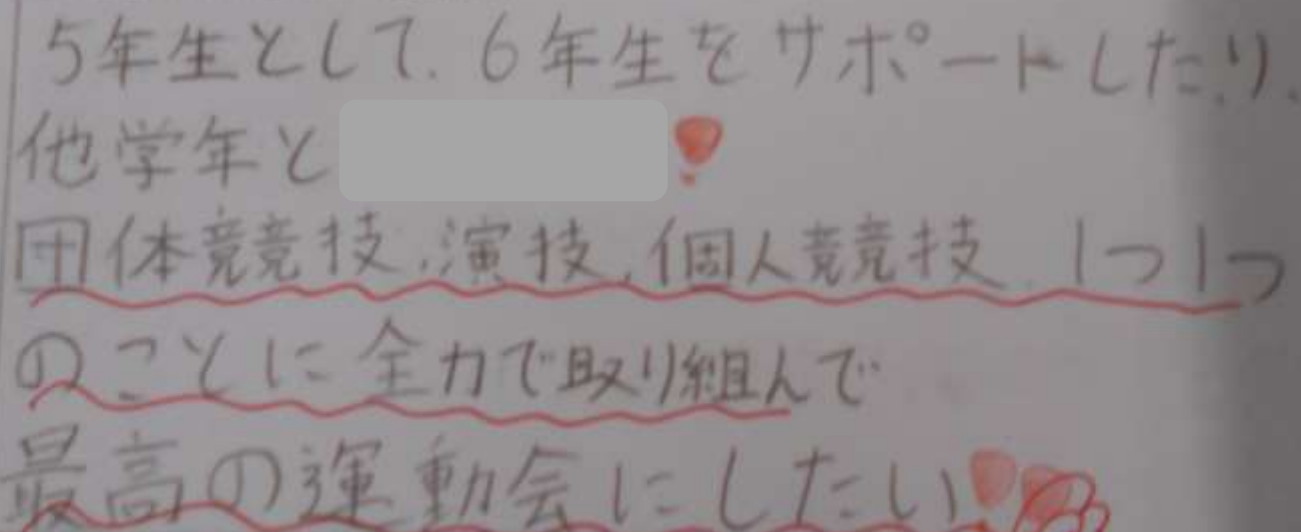 5年生として、6年生をサポートしたり、
他学年と
団体競技、演技、個人競技、1つ1つ
のことに全力で取り組んで
最高の運動会にしたい